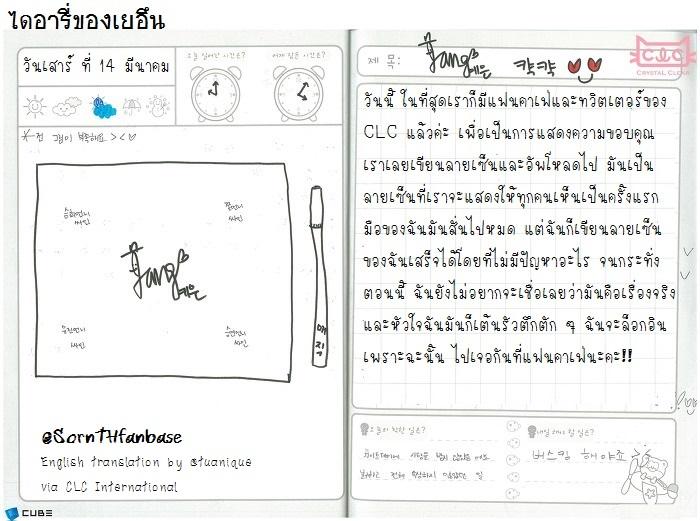 ไดอารี่ของเยอึน
วันเสาร์ ที่ 14 มีนาคม
오늘 일어난 시간은?
어제 잠든 시간은?
제 목:
Jang
예은
캭캭
CLC
CRYSTAL CLEAR
승희언니
싸인
Jang
예은
유진언니
싸인
승연언니
싸인
매직
วันนี้ ในที่สุดเราก็มีแฟนคาเฟ่และทวิตเตอร์ของ
CLC แล้วค่ะ เพื่อเป็นการแสดงความขอบคุณ
เราเลยเขียนลายเซ็นและอัพโหลดไป มันเป็น
ลายเซ็นที่เราจะแสดงให้ทุกคนเห็นเป็นครั้งแรก
มือของฉันมันสั่นไปหมด แต่ฉันก็เขียนลายเซ็น
ของฉันเสร็จได้โดยที่ไม่มีปัญหาอะไร จนกระทั่ง
ตอนนี้ ฉันยังไม่อยากจะเชื่อเลยว่ามันคือเรื่องจริง
และหัวใจฉันมันก็เต้นรัวตึกตัก ๆ ฉันจะล็อกอิน
เพราะฉะนั้น ไปเจอกันที่แฟนคาเฟ่นะคะ!!
@SornTHfanbase
English translation by @tuanique
via CLC International
CUBE
오늘의 착한 일은?
내일 해야 할 일은?
버스킹 해야죠